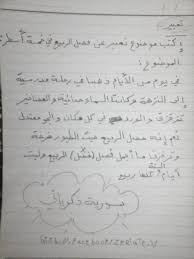 تعبير
إكتب موضوع تعبير عن فصل الربيع في خمسة أسطر
الموضوع:
في يوم من الأيام ذهبنا في رحلة مدرسية
إلى النزهة وكانت السماء صافية والعصافير
تزقزق والورد في كل مكان والجو معتدل
نعم إنه فصل الربيع حيث الطيور فرحة
وتزقزق ما أجمل فصل الربيع وليت
أيام السنة كلها ربيع
حورية ذكرياتي